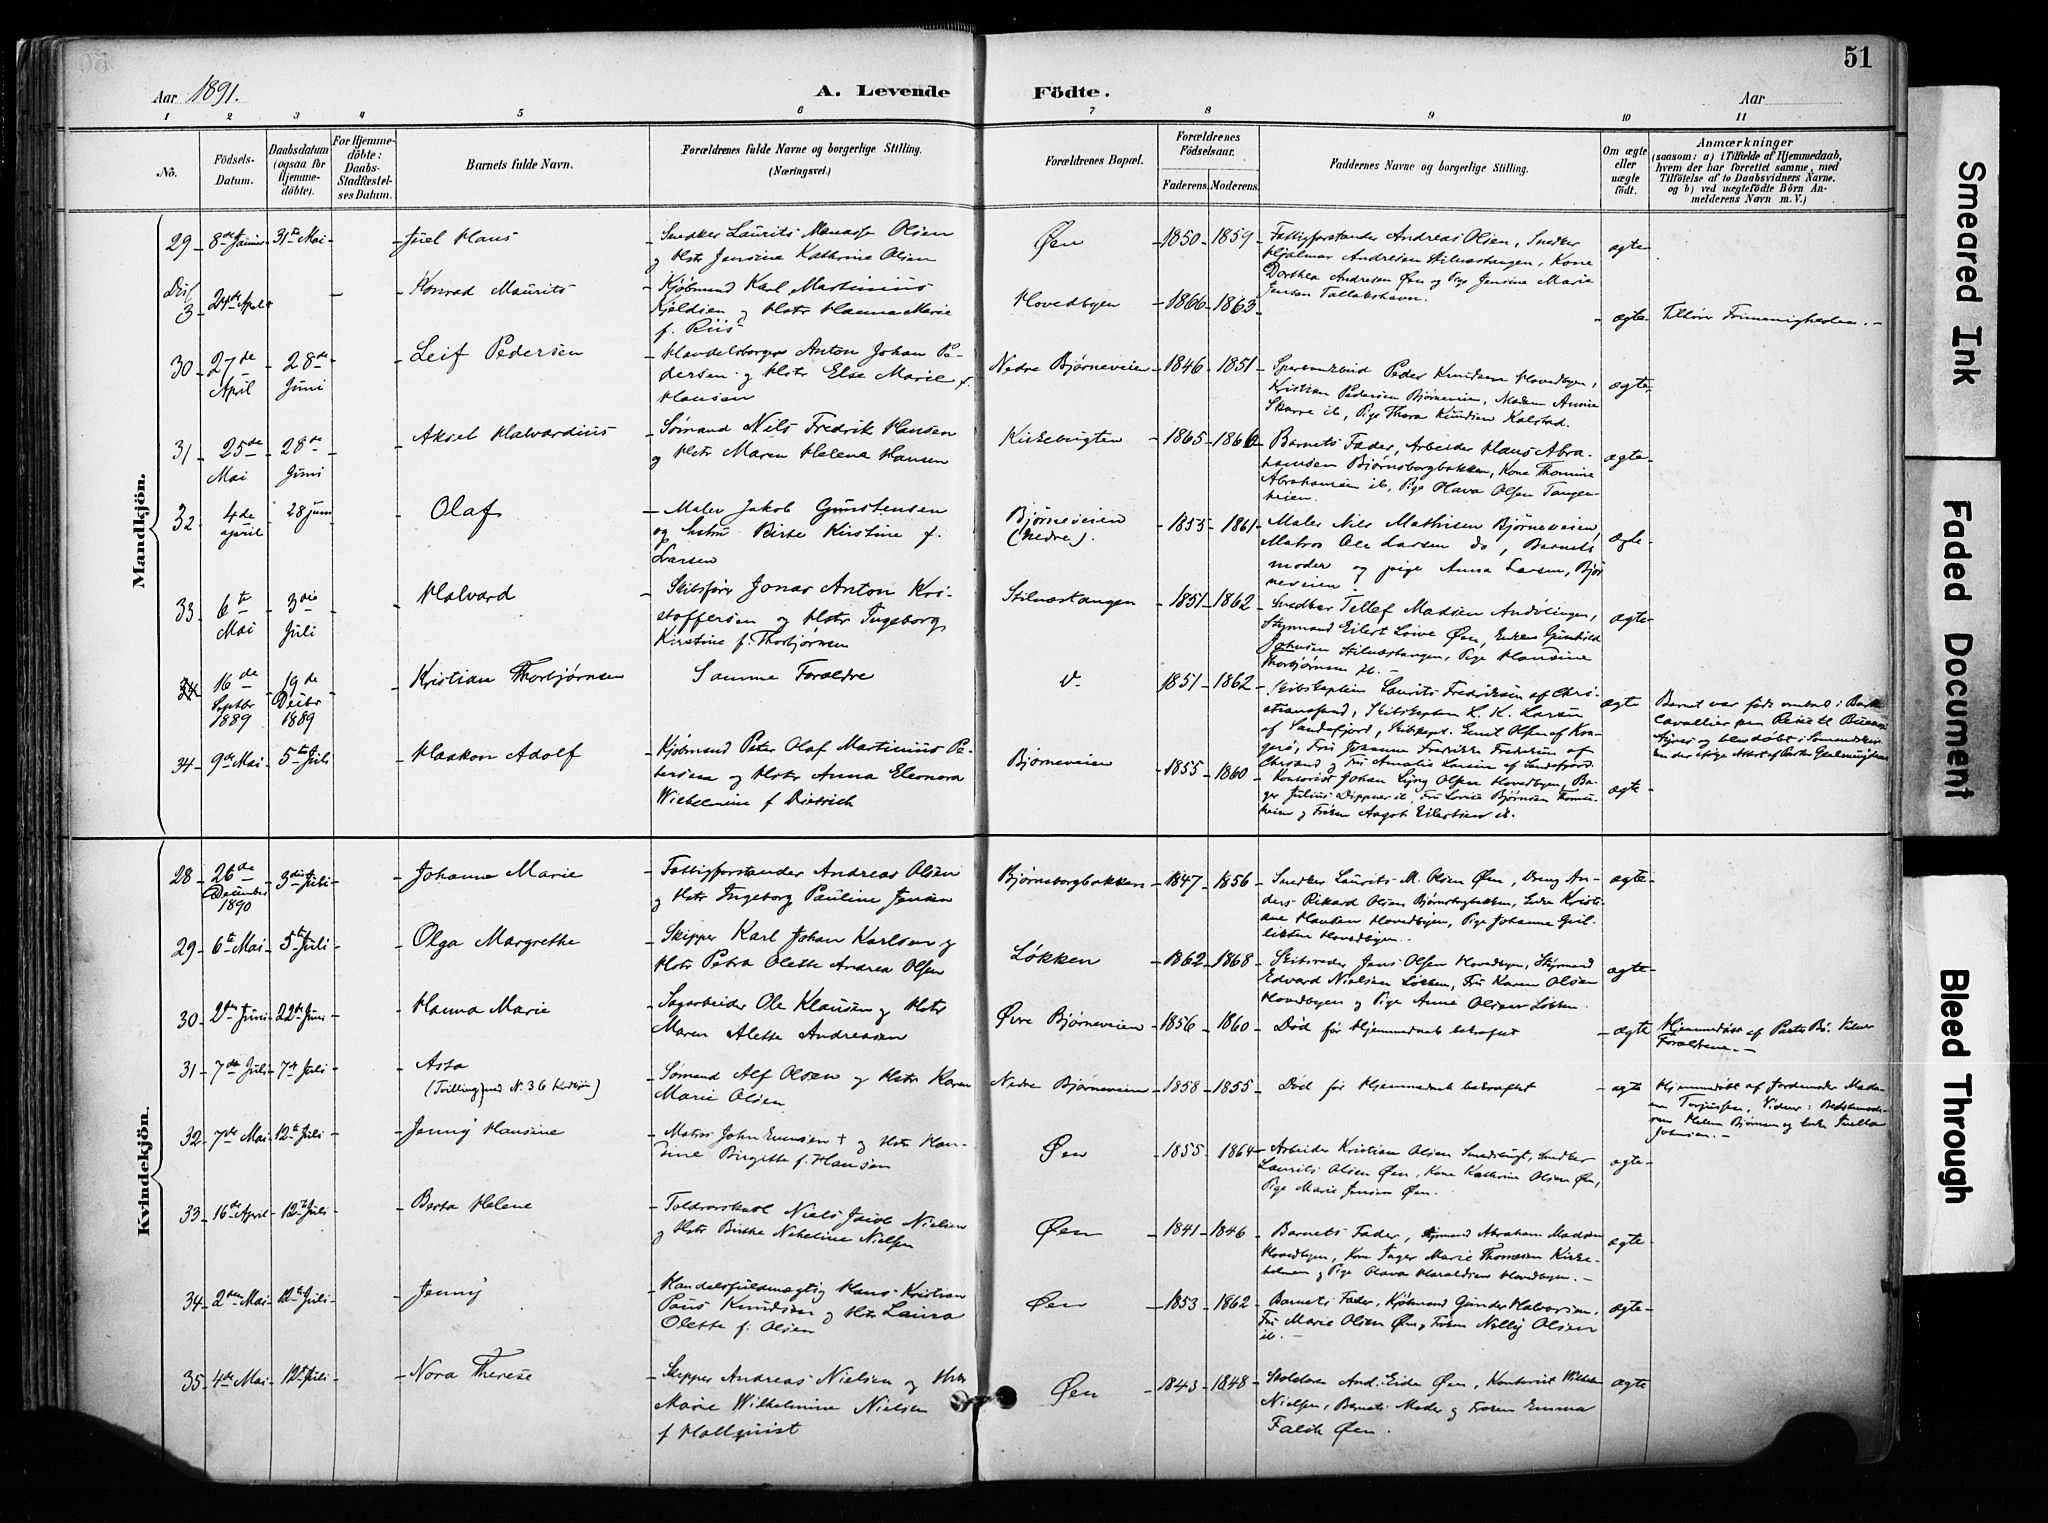 51
Aar 1891.
A. Levende Födte.
Aar
1 2 3 4 5 6 7 8 9 10 11
No.
Födsels-Datum.
Daabsdatum (ogsaa for Hjemme-döbte).
For Hjemme-döbte: Daabs-Stadfæstel-ses Datum.
Barnets fulde Navn.
Forældrenes fulde Navne og borgerlige Stilling. (Næringsvei.)
Forældrenes Bopæl.
Forældrenes Födselsaar.
Faderens. Moderens.
Faddernes Navne og borgerlige Stilling.
Om ægte eller uægte födt.
Anmærkninger
(saasom: a) i Tilfælde af Hjemmedaab, hvem der har forrettet samme, med Tilföielse af to Daabsvidners Navne. og b) ved uægtefödte Börn An-melderens Navn m. V.)
Mandkjön.
29 31te Mai Juel Hans
Snedker Laurits Olsen
og Hstr Jensine Kathrine Olsen
Øen 1850 1859
Fattigforstander Andreas Olsen, Snedker
Hjalmar Andresen Stilnæstangen, Kone
Dorthea Andresen Øen og Pige Jensine Marie
ægte
3 24de April Konrad Maurits
Kjøbmand Karl Martinius
Kjeldsen og Hstr Hanna Marie
f. Riis
Hovedbyen 1866 1863 ægte
30 27de April 28de Juni Leif Pedersen
Handelsborger Anton Johan Pe-
dersen og Hstr Else Marie f.
Hansen
Nedre Bjørneveien 1846 1851
Peder Knudsen Hovedbyen,
Kristian Pedersen Bjørneveien, Madam
Skarre ib, Pige Thora Knudsen Kalstad.
ægte
31 25de Mai 28de Juni Aksel Halvardius
Sømand Nils Fredrik Hansen
og Hstr Maren Helene Hansen
Kirkebugten 1865
Barnets Fader, Arbeider Hans Abra-
hamsen Bjørnsborgbakken, Kone Thomine
Abrahamsen ib, Pige Hava Olsen Tangen-
heien.
ægte
32 4de april 28 juni Olaf
Maler Jakob Gunstensen
og hstru Birte Kirstine f.
Larsen
Bjørneveien
(Nedre).
1853 1861
Maler Nils Mathisen Bjørneveien,
Matros Ole Larsen do, Barnets
moder og pige Anna Larsen, Bjør
neveien
ægte
33 6te Mai 3die Juli Halvard
Skibsfører Jonas Anton Kri-
stoffersen og Hstr Ingeborg
Kirstine f. Thorbjørnsen
Stilnæstangen 1851 1862
Snedker Tellef Madsen
Styrmand Eilert Øen, Enken Gunhild
Johnsen Stilnæstangen, Pige Hansine
Thorbjørnsen ib.
ægte
16de Septbr 1889 19de Decbr 1889 Kristian Thorbjørnsen
Samme Forældre
1851 1862
Skibskaptein Laurits Fredriksen af Chri-
stianssand, Skibskaptein L. K. Larsen
af Sandefjord, Skibskapt. Olsen af
Johanne Fredrikke Fredriksen af
og Fru Amalie Larsen af Sandefjord.
ægte
Barnet var født ombord i Bark
Cavallier paa Reise til Buenos
Ayres og blev døbt
34 9de Mai 5te Juli Haakon Adolf
Kjøbmand Peter Olaf Martinius Pe-
tersen og Hstr Anna Eleonora
Wilhelmine f Dietrich
Bjørneveien 1855 1860
Kontorist Johan Olsen Hovedbyen,
ægte
Kvindekjön.
28 26de December 1890 3die Juli Johanna Marie
Fattigforstander Andreas Olsen
og Hstr Ingeborg Pauline Jensen
Bjørnsborgbakken 1847 1856
Snedker Laurits M. Olsen Øen, Dreng An-
ders Rikard Olsen Bjørnsborgbakken, Enke Kristi-
ane Hansen Hovedbyen, Pige Johanne Gul-
liksen Hovedbyen.
ægte
29 6te Mai 5te Juli Olga Margrethe
Skipper Karl Johan Karlsen og
Hstr Petra Olette Andrea Olsen
Løkken 1862 1868
Skibsreder Jens Olsen Hovedbyen, Styrmand
Edvard Nielsen Løkken, Fru Karen Olsen
Hovedbyen og Pige Anne Olsen Løkken.
ægte
30 2den Juni 22de Juni Hanna Marie
Sagarbeider Ole Klausen og Hstr
Maren Alette Andreasen
Øvre Bjørneveien 1856 1860
Død før Hjemmedaab bekræftet
ægte
Hjemmedøbt af
Forældrene.
31 7de Juli 7de Juli Asta
(Tvilling med N. 36)
Sømand Alf Olsen og Hstr Karen
Marie Olsen
Nedre Bjørneveien 1858 1855
Død før Hjemmedaab bekræftet
ægte
Hjemmedøbt af Jordemoder Mada-
me Terjussen, Vidner: Bedstemode-
ren Helene Bjørnsen og Enke
Johnsen.
32 7de Mai 12te Juli Jenny Hansine
Matros John Evensen † og Hstr Han-
sine Birgitte f. Hansen
Øen 1855 1864
Arbeider Kristian Olsen Smedsbugt, Snedker
Laurits Olsen Øen, Kone Kathrine Olsen Øen,
Pige Marie Jensen Øen.
ægte
33 16de April 12te Juli Berta Helene
Toldroerskarl Niels Jacob Nielsen
og Hstr Birthe Nikoline Nielsen
Øen 1841 1846
Barnets Fader, Styrmand Abraham Madsen
Hovedbyen, Kone Inger Marie Thomesen Kirke-
holmen og Pige Hava Haraldsen Hovedbyen.
ægte
34 2den Mai 12te Juli Jenny
Handelsfuldmægtig Hans Kristian
Paus Knudsen og Hstr Laura
Olette f. Olsen
Øen 1853 1862
Barnets Fader, Kjøbmand Gunder Halvorsen,
Fru Marie Olsen Øen, Frøken Nelly Olsen
ib.
ægte
35 4de Mai 12te Juli Nora Therese
Skipper Andreas Nielsen og Hstr
Marie Wilhelmine Nielsen
f Hallquist
Øen 1843 1848
Skolelærer And. Eide Øen, Kontorist Wilhelm
Nielsen, Barnets Moder og Frøken Emma
Falck Øen.
ægte
Smeared Ink
Faded Document
Bleed Through